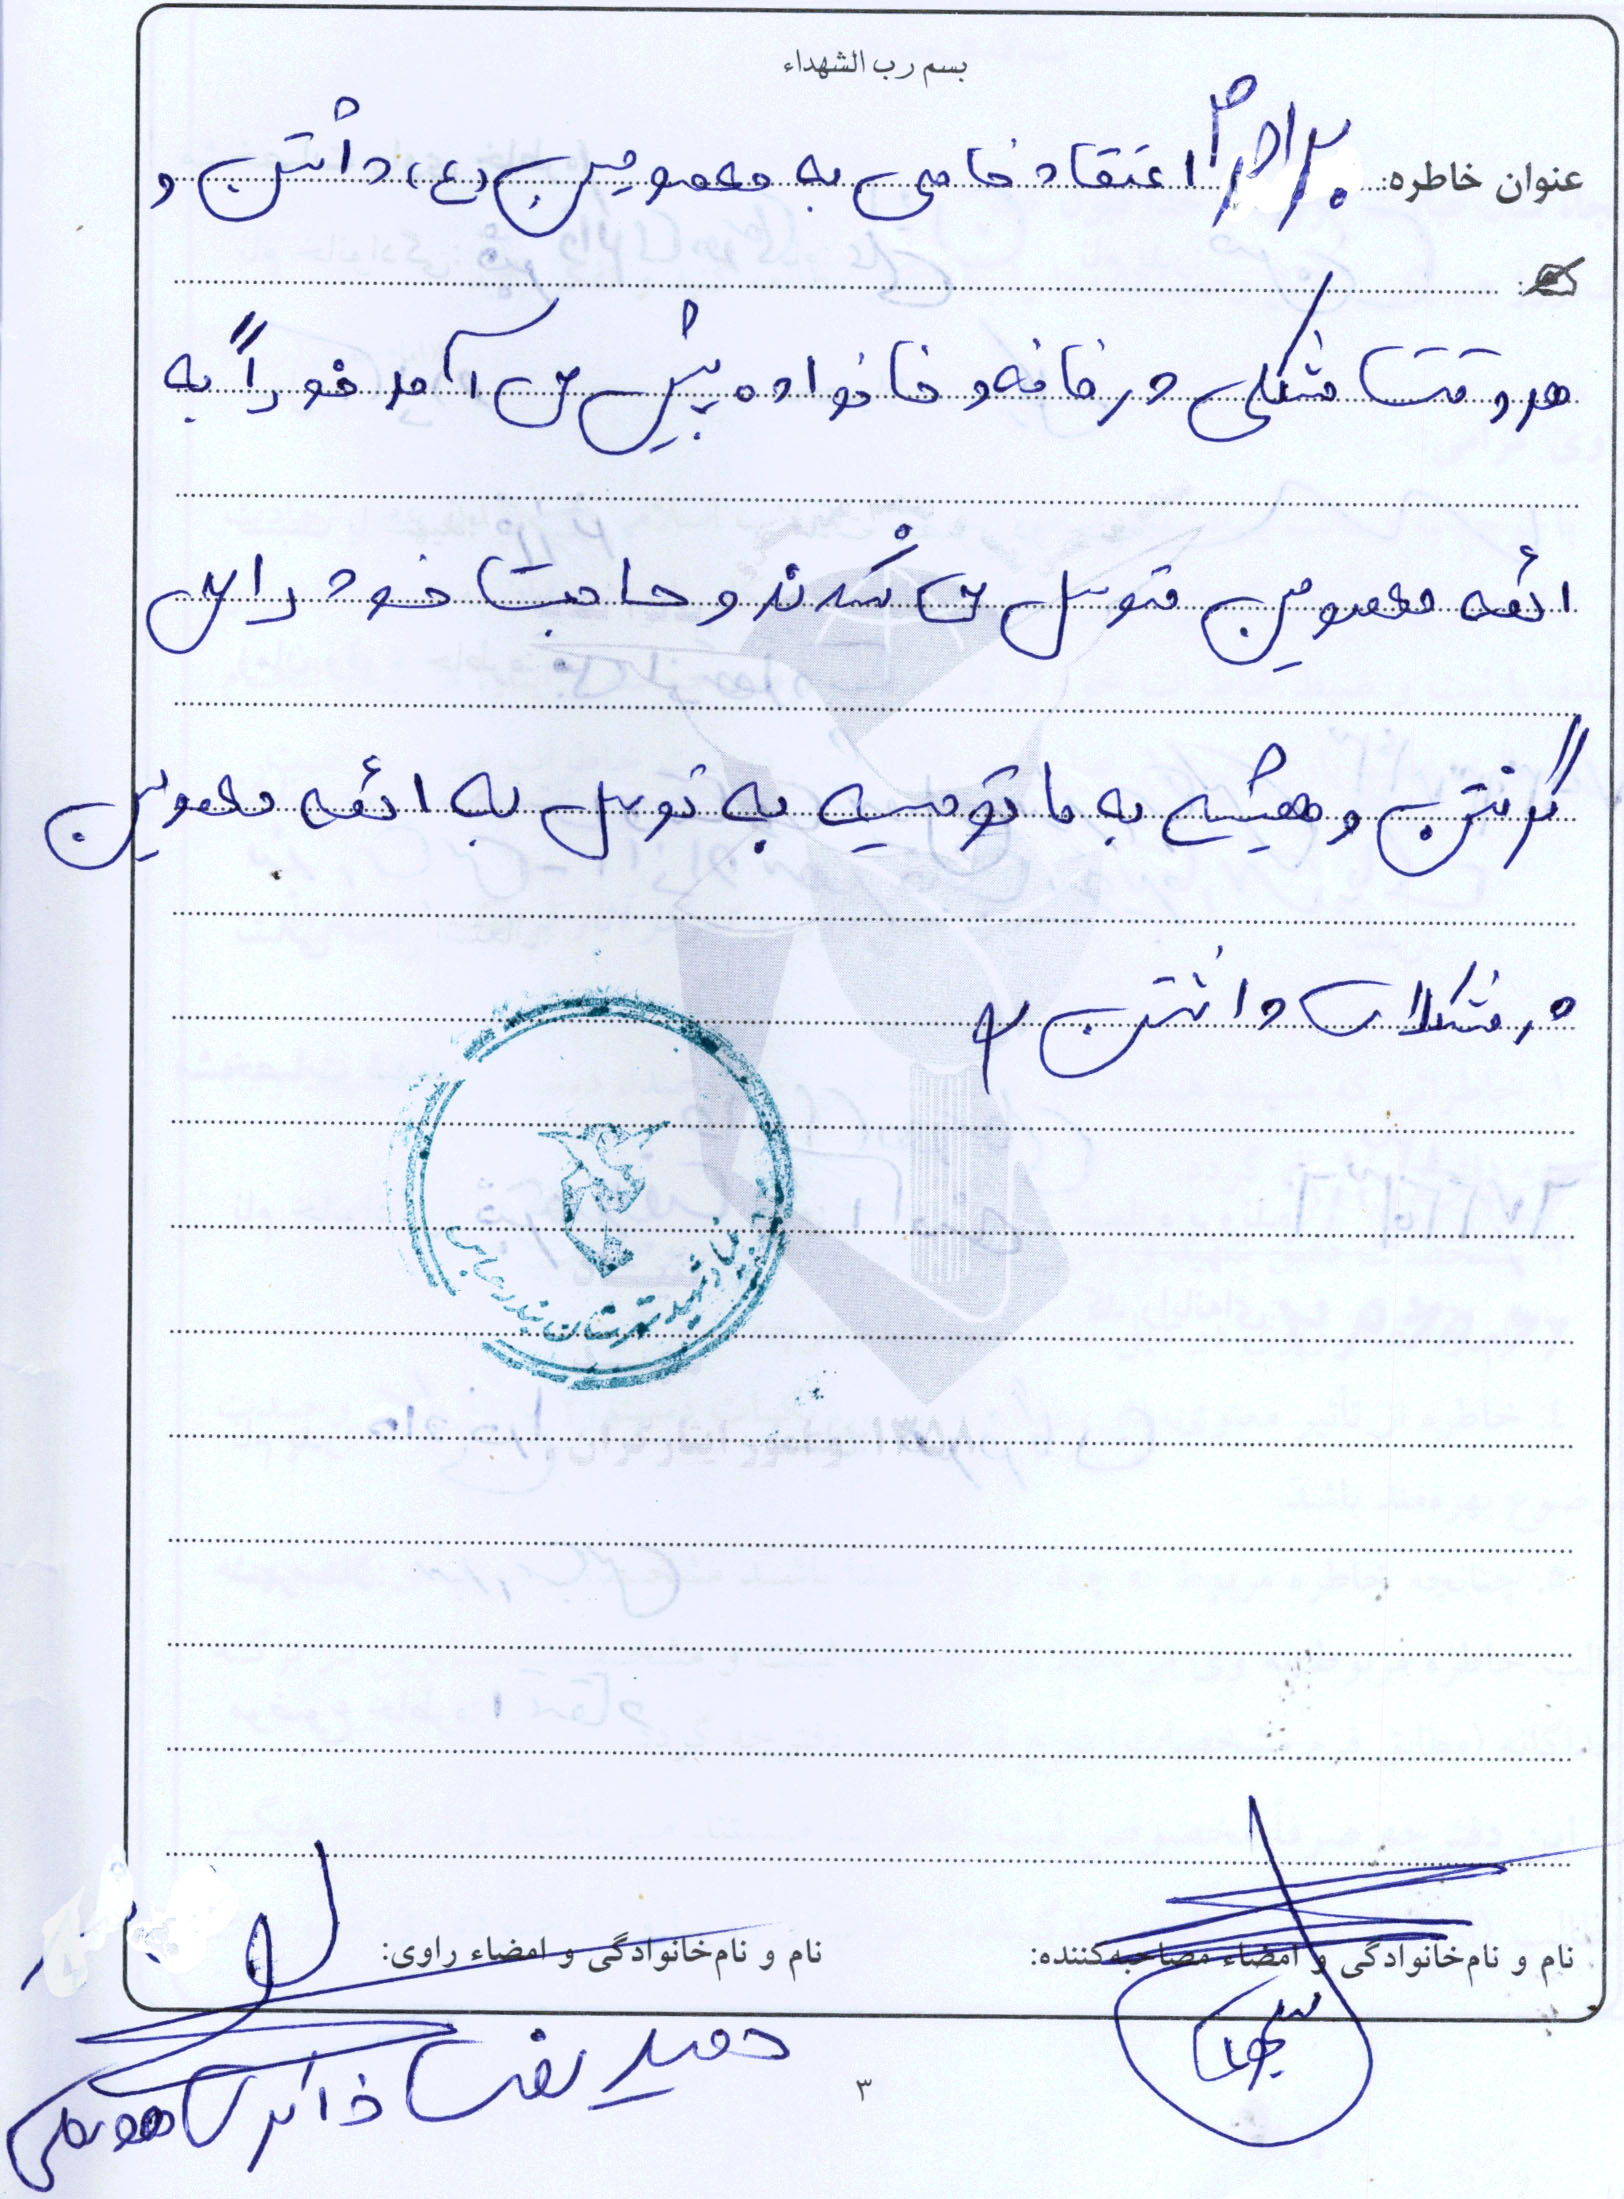 بسم رب الشهداء
عنوان خاطره: برادرم اعتقاد خاصی به معصومین (ع) داشتن و
هر وقت مشکلی در خانه و خانواده پیش می آمد خود را به
ائمه معصومین متوسل می کردند و حاجت خود را می
گرفتن و همیشه به ما توصیه به توسل به ائمه معصومین
در مشکلات داشتن
بنیاد شهید شهرستان بندر عباس
نام و نام‌خانوادگی و امضاء مصاحبه‌کننده:
نام و نام‌خانوادگی و امضاء راوی:
حمید نعمت ذاکری
۳